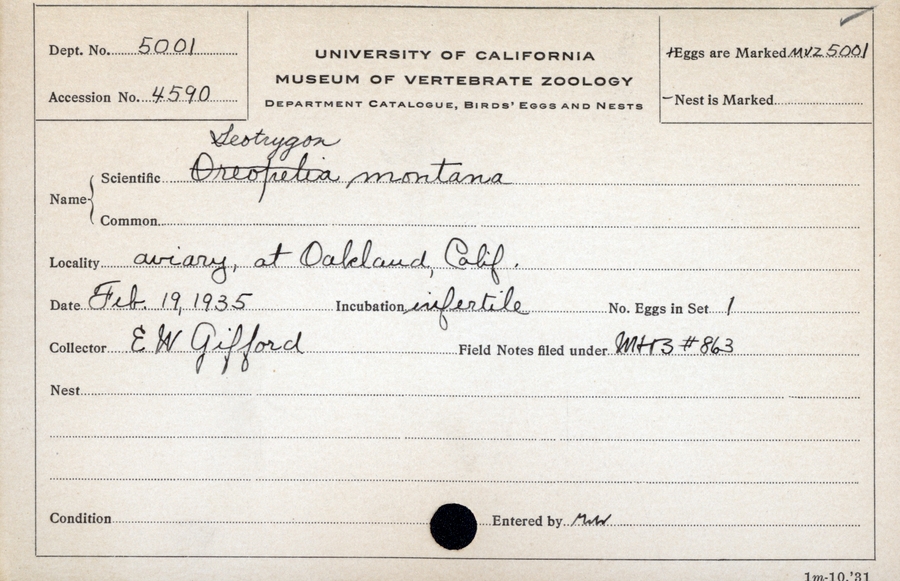 Dept. No. 5001
Accession No. 4590
UNIVERSITY OF CALIFORNIA
MUSEUM OF VERTEBRATE ZOOLOGY
DEPARTMENT CATALOGUE, BIRDS' EGGS AND NESTS
+Eggs are Marked MVZ 5001
-Nest is Marked
Geotrygon
Name Scientific Oreopelia montana
Common
Locality aviary, at Oakland, Calif.
Date Feb. 19, 1935 Incubation infertile No. Eggs in Set 1
Collector E W Gifford Field Notes filed under MHB #863
Nest
Condition Entered by
1m-10,'31